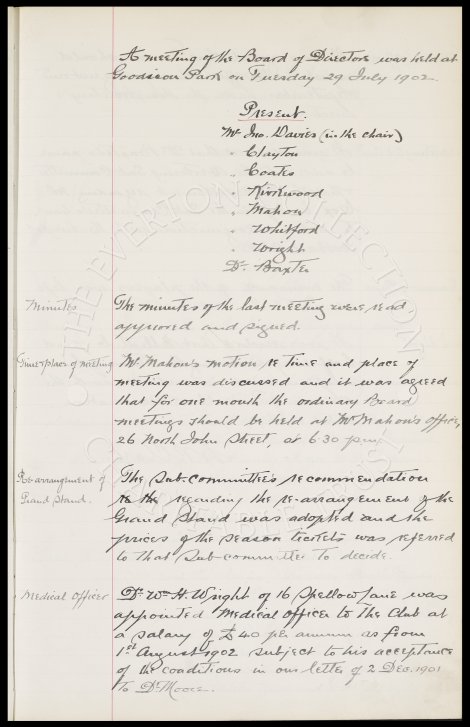 A meeting of the Board of Directors was held at
Goodison Park on Tuesday 29 July 1902
Present.
Mr Jno. Davies (in the chair)
" Clayton
" Coates
" Kirkwood
" Mahon
" Whitford
" Wright
Dr. Baxter
Minutes
The minutes of the last meeting were read
approved and signed.
Time & place of meeting
Mr. Mahon's motion re time and place of
meeting was discussed and it was agreed
that for one month the ordinary Board
meetings should be held at Mr Mahon's office,
26 North John Street, at 6.30 pm.
Re-arrangement of
Grand Stand.
The sub-committee's recommendation
re the regarding the re-arrangement of the
Grand Stand was adopted and the
prices of the season tickets was referred
to that sub-committee to decide.
Medical Officer
Dr. Wm H. Wright of 16 Spellow Lane was
appointed Medical Officer to the Club at
a salary of £40 per annum as from
1st August 1902 subject to his acceptance
of the conditions in our letter of 2 Dec. 1901
to Dr Moore.
THE EVERTON COLLECTION